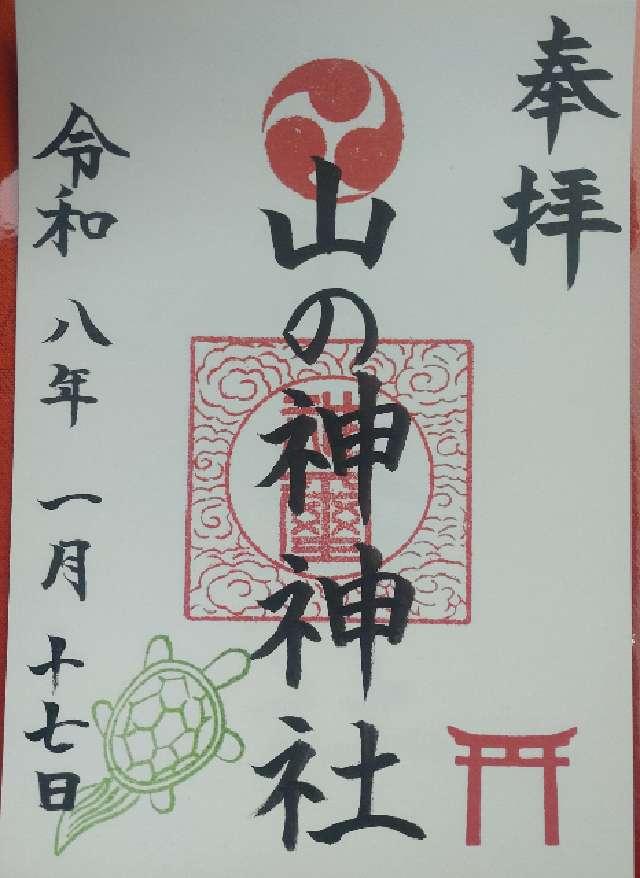 奉拝
山の神神社
令和八年一月十七日